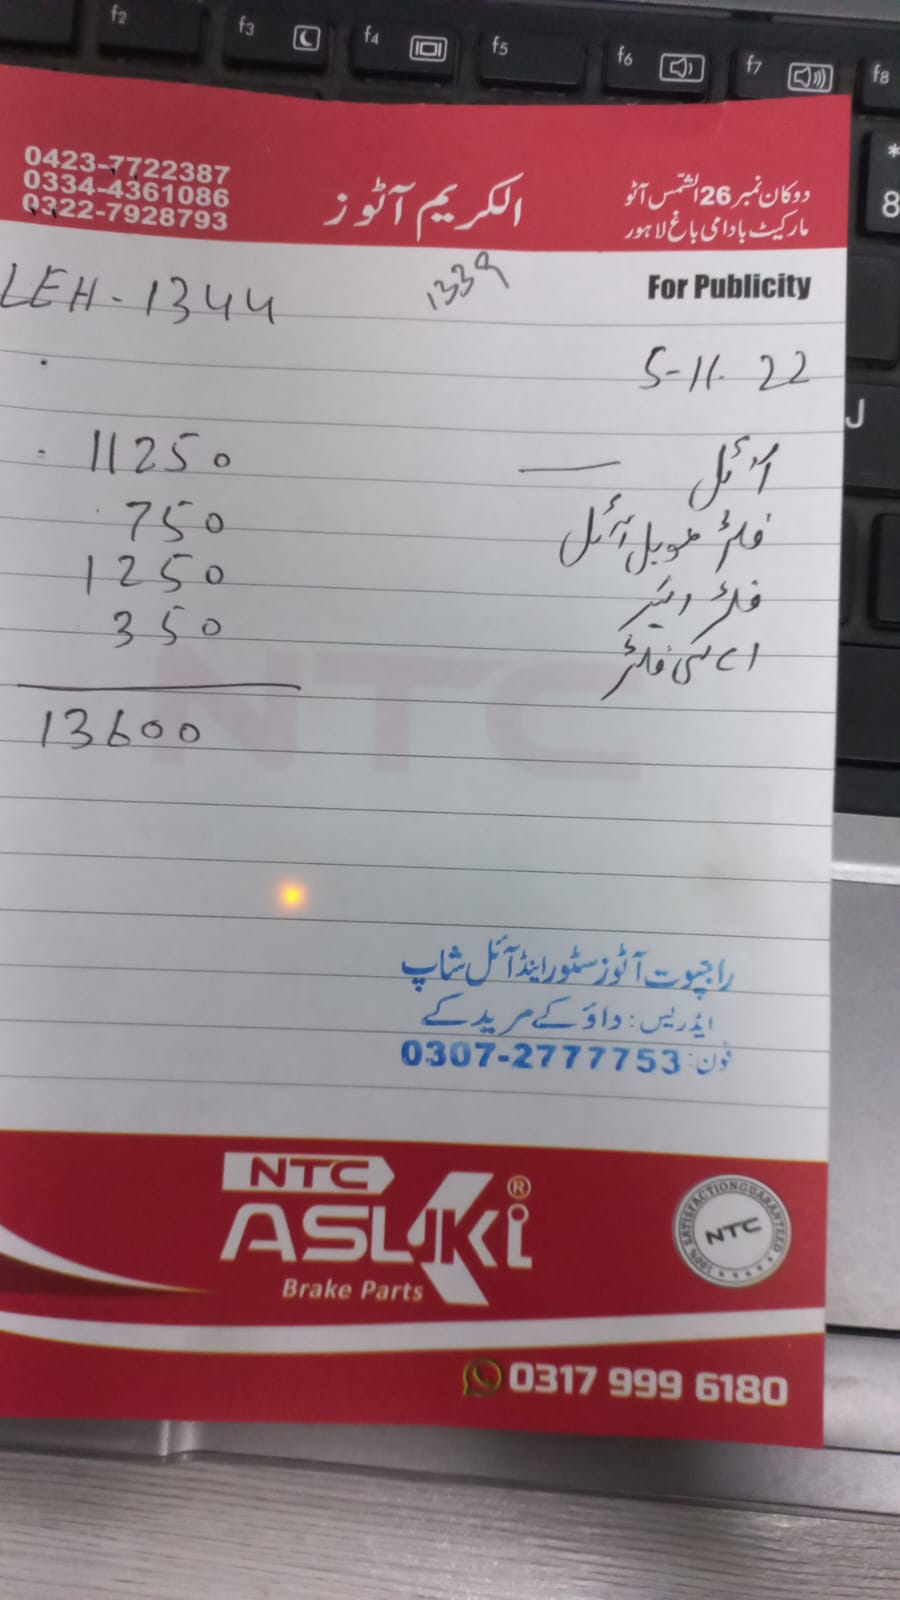 f2 f3 f4 f5 f6 f7 f8
* 8
J
0423-7722387
0334-4361086
0322-7928793
الکریم آٹوز
دوکان نمبر 26 الشمس آٹو
مارکیٹ بادامی باغ لاہور
For Publicity
LEH - 1344
1339
5-11-22
آئل — 11250
فلٹر موبل آئل 750
فلٹر ائیر 1250
اے سی فلٹر 350
13600
NTC
راجپوت آٹوز سٹور اینڈ آئل شاپ
ایڈریس: داؤکے مریدکے
فون: 0307-2777753
NTC
ASUKi ®
Brake Parts
100% SATISFACTION GUARANTEED
NTC
0317 999 6180